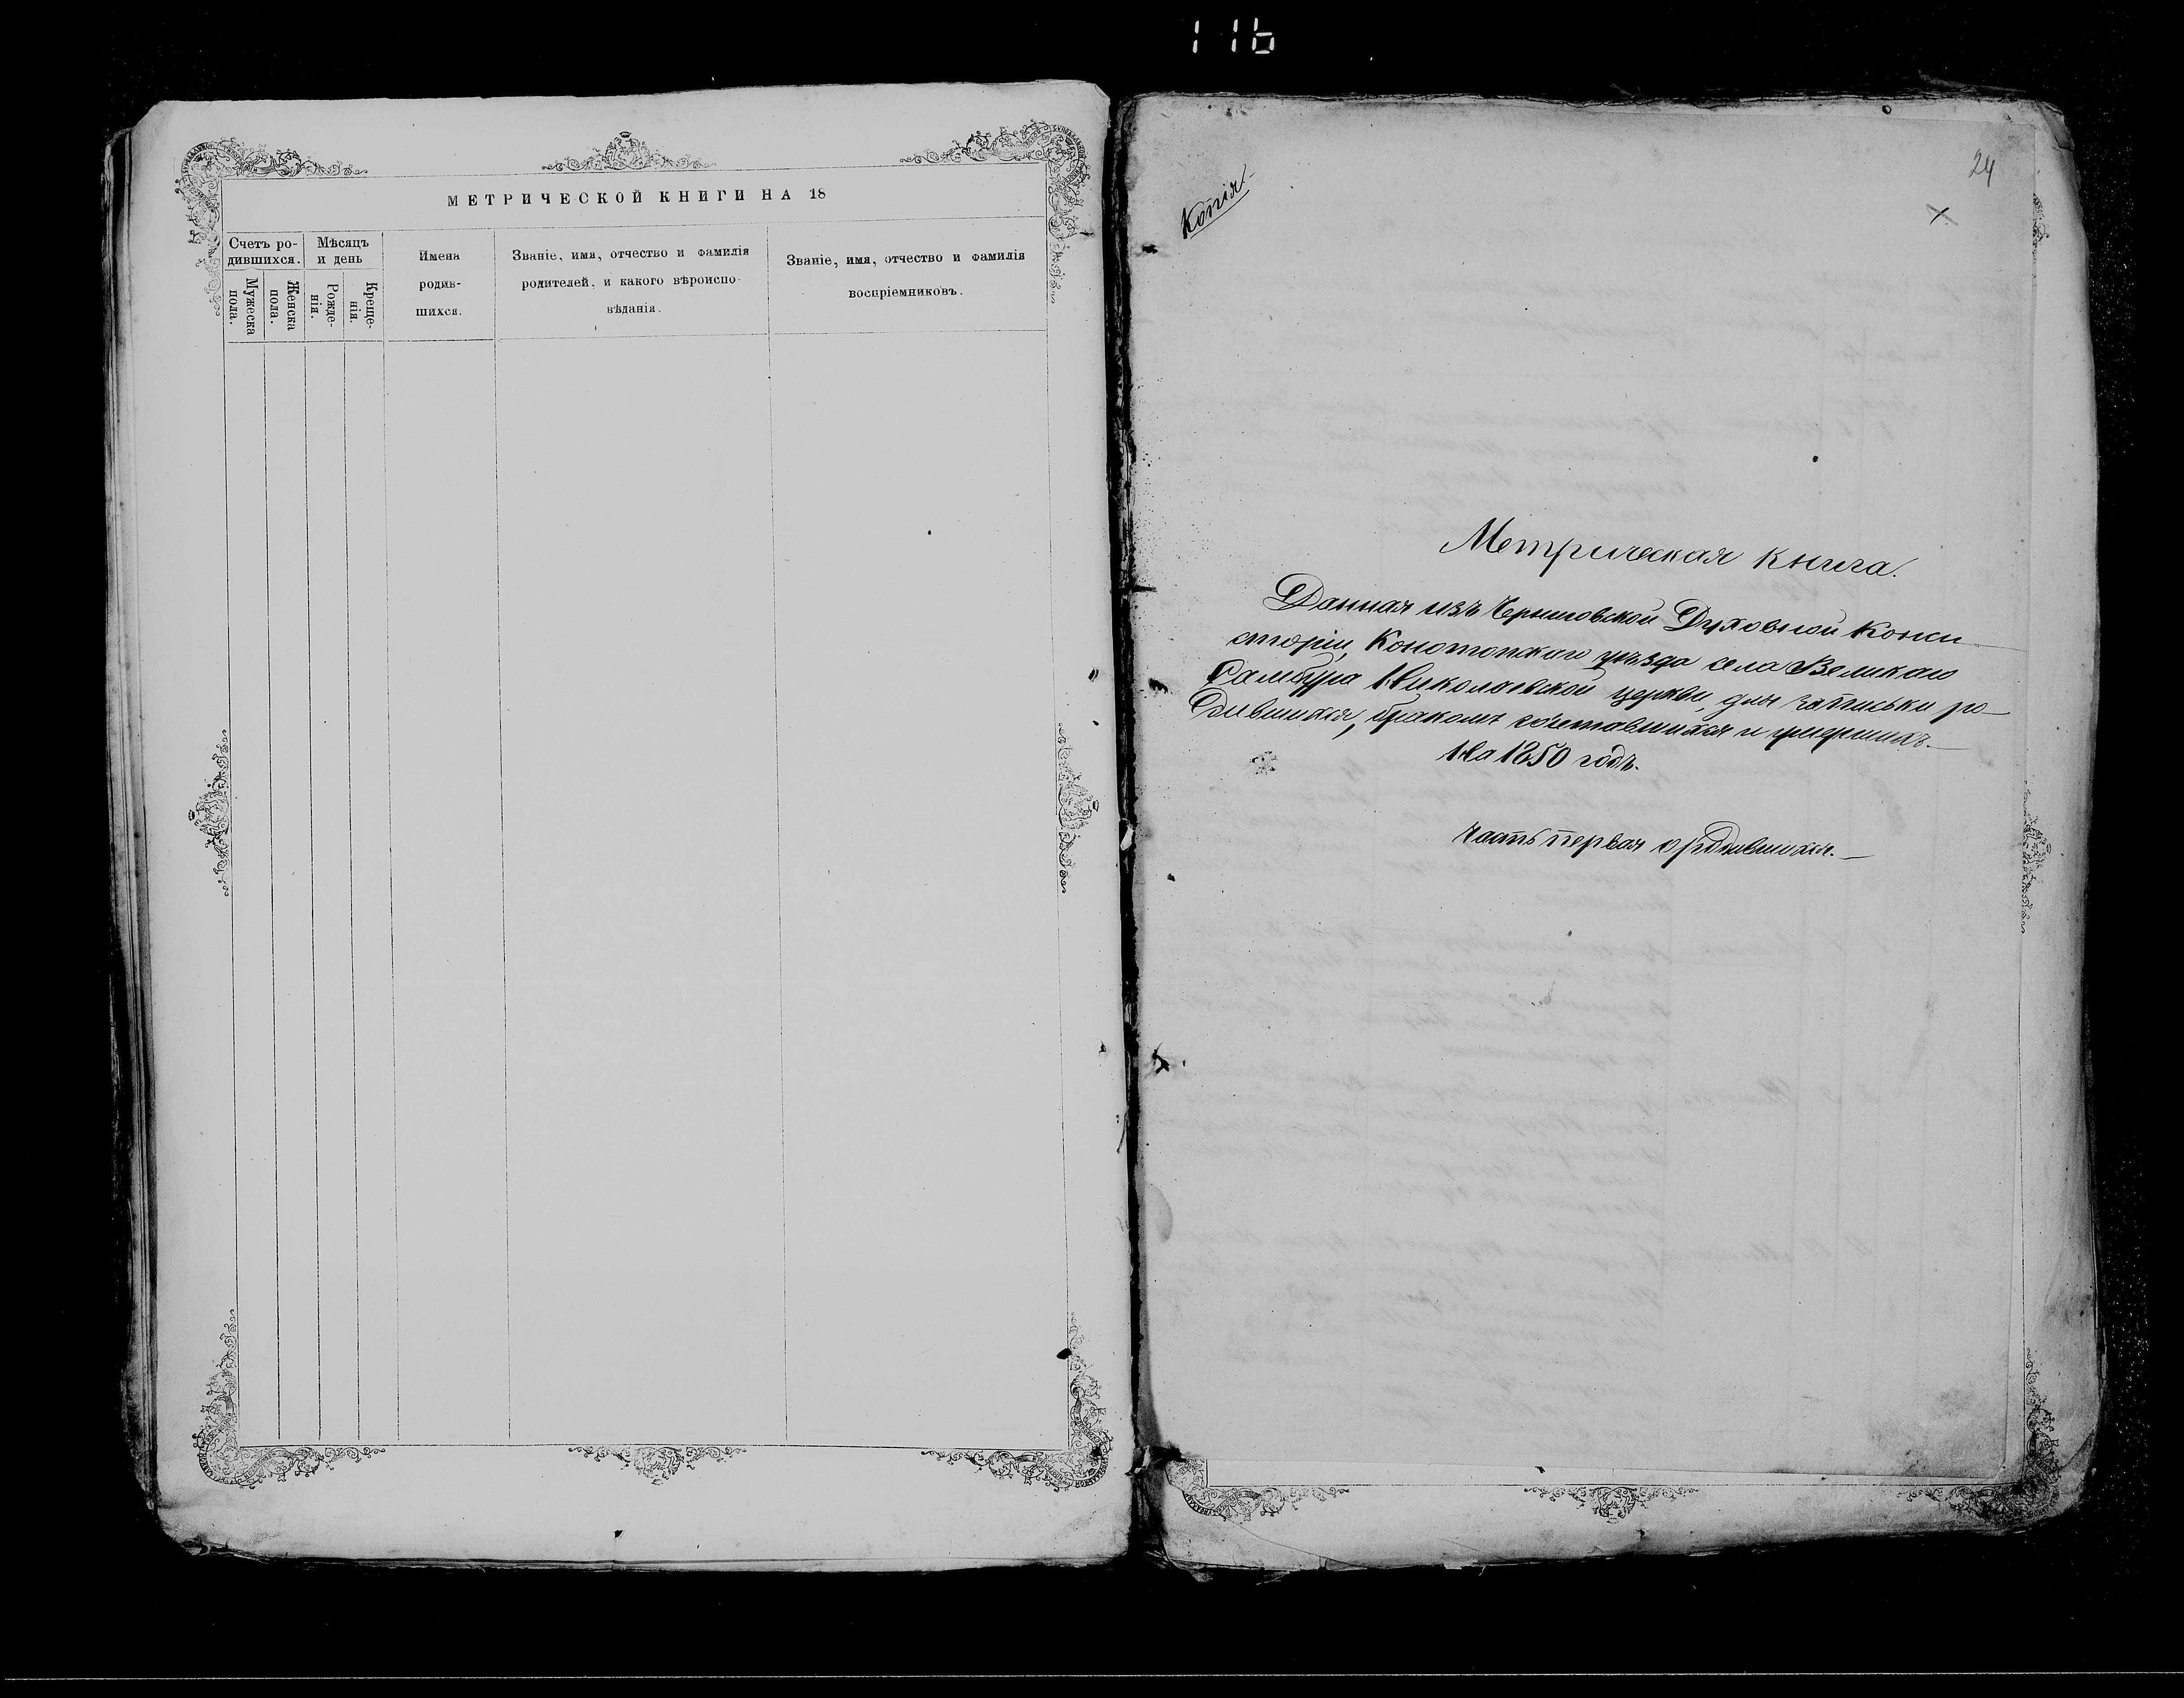 116
МЕТРИЧЕСКОЙ КНИГИ НА 18
Счетъ ро-
дившихся.
Мѣсяцъ
и день
Мужеска
пола.
Женска
пола.
Рожде-
нія.
Креще-
нія.
Имена
родив-
шихся.
Званіе, имя, отчество и фамилія
родителей, и какого вѣроиспо-
вѣданія.
Званіе, имя, отчество и фамилія
воспріемниковъ.
24
Копія.
Метрическая книга.
Данная изъ Черниговской Духовной Конси-
сторіи, Конотопскаго уѣзда села Великаго
Самбура Николаевской церкви, для записки ро-
дившихся, бракомъ сочетавшихся и умершихъ.
На 1850 годъ.
Часть первая о родившихся.